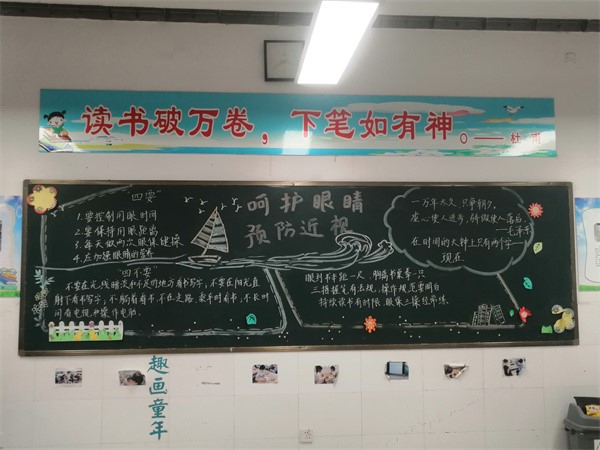 读书破万卷，下笔如有神。——杜甫
"四要"
1.要控制用眼时间
2.要保持用眼距离
3.每天做两次眼保健操
4.应加强眼睛的营养
呵护眼睛
预防近视
一万年太久，只争朝夕。
虚心使人进步，骄傲使人落后。
——毛泽东
在时间的大钟上只有两个字——
现在
"四不要"
不要在光线暗淡和不足的地方看书写字，不要在阳光直
射下看书写字，不躺着看书，不在走路、乘车时看书，不长时
间看电视和操作电脑。
眼到本子距一尺，胸离书桌要一
三指握笔有法规，操作规范要明白
持续读书有时限，眼保三操经常练
趣画童年